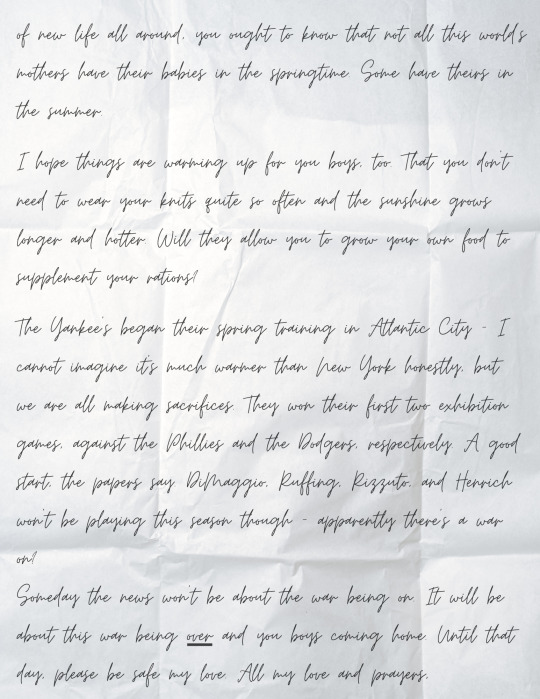 of new life all around, you ought to know that not all this world's
mothers have their babies in the springtime. Some have theirs in
the summer.
I hope things are warming up for you boys, too. That you don't
need to wear your knits quite so often and the sunshine grows
longer and hotter. Will they allow you to grow your own food to
supplement your rations?
The Yankee's began their spring training in Atlantic City - I
cannot imagine it's much warmer than New York honestly, but
we are all making sacrifices. They won their first two exhibition
games, against the Phillies and the Dodgers, respectively. A good
start, the papers say. DiMaggio, Ruffing, Rizzuto, and Henrich
won't be playing this season though - apparently there's a war
on?
Someday the news won't be about the war being on. It will be
about this war being over and you boys coming home. Until that
day, please be safe my love. All my love and prayers,